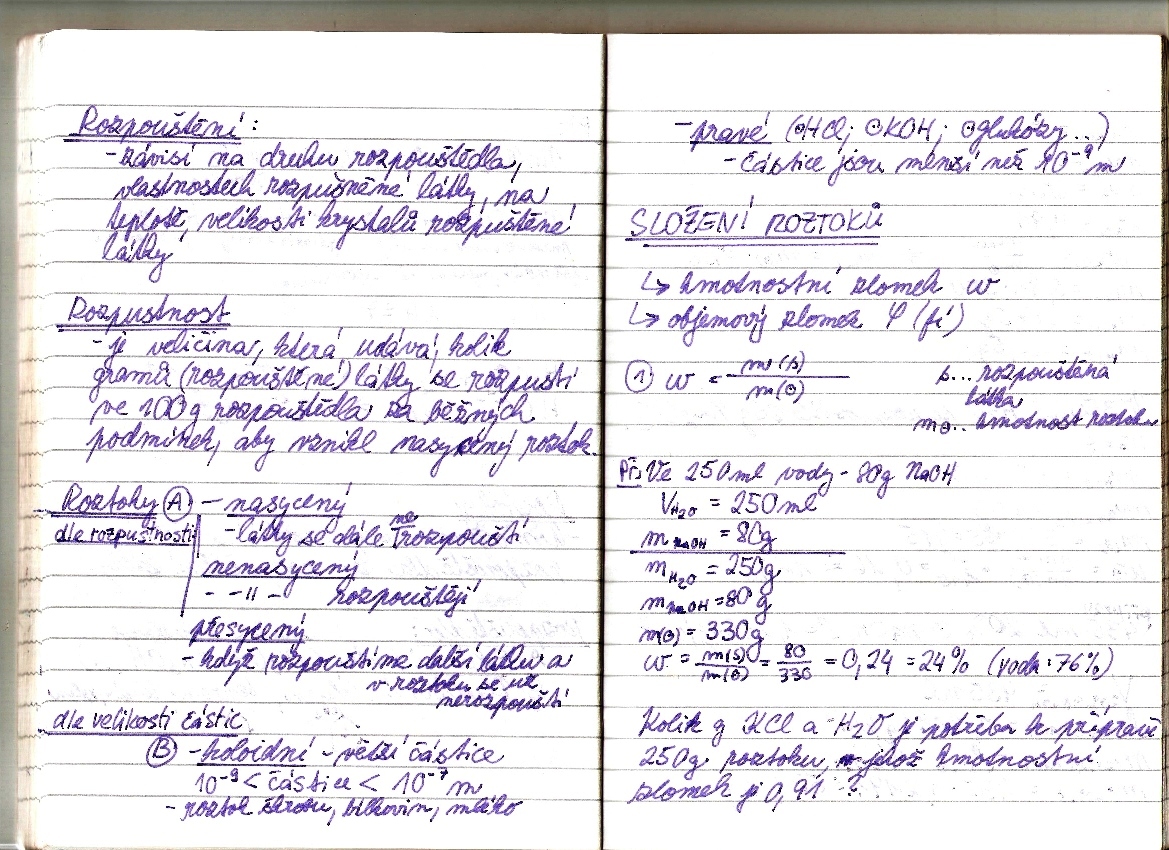 Rozpouštění:
- závisí na druhu rozpouštědla,
vlastnostech rozpuštěné látky, na
teplotě, velikosti krystalů rozpuštěné
látky
Rozpustnost
- je veličina, která udává, kolik
gramů (rozpouštěné) látky se rozpustí
ve 100g rozpouštědla za běžných
podmínek, aby vznikl nasycený roztok.
Roztoky Ⓐ - nasycený
dle rozpustnosti
- látky se dále ne rozpouští
nenasycený
- -||- rozpouštějí
přesycený
- když rozpouštíme další látku a
v roztoku se už
nerozpouští
dle velikosti částic
Ⓑ - koloidní - větší částice
10⁻⁹ < částice < 10⁻⁷ m
- roztok škrobu, bílkovin, mléko
- pravé (⊙HCl; ⊙KOH; ⊙glukózy...)
- částice jsou menší než 10⁻⁹ m
SLOŽENÍ ROZTOKŮ
↳ hmotnostní zlomek w
↳ objemový zlomek φ (fí)
① w = m(s) / m(⊙) s... rozpouštěná
látka
m⊙.. hmotnost roztoku
Př: Ve 250ml vody - 80g NaOH
V H₂O = 250ml
m NaOH = 80g
m H₂O = 250g
m NaOH = 80g
m(⊙) = 330g
w = m(s)/m(⊙) = 80/330 = 0,24 = 24% (voda: 76%)
Kolik g KCl a H₂O je potřeba k přípravě
250g roztoku, jehož hmotnostní
zlomek je 0,91 ?